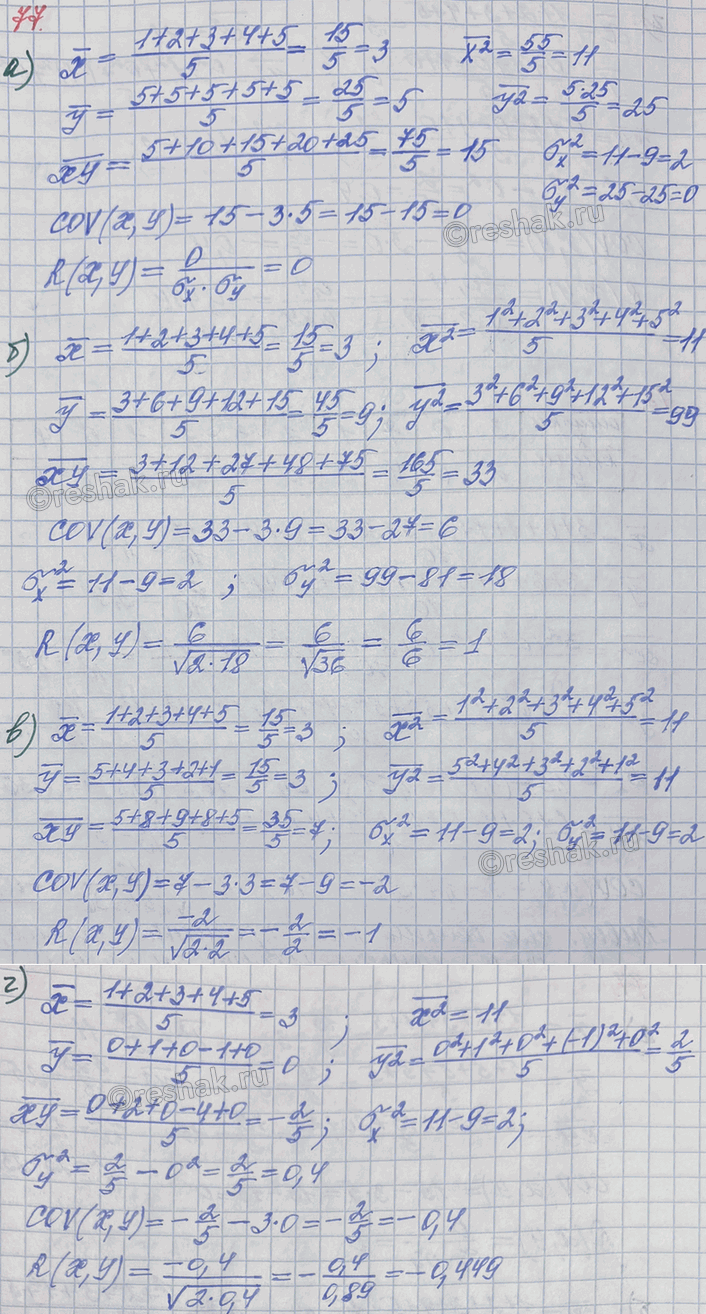 77.
а) x̄ = (1+2+3+4+5)/5 = 15/5 = 3    x̄² = 55/5 = 11
ȳ = (5+5+5+5+5)/5 = 25/5 = 5    ȳ² = (5·25)/5 = 25
x̄ȳ = (5+10+15+20+25)/5 = 75/5 = 15    σx² = 11-9=2
σy² = 25-25=0
COV(x,y) = 15-3·5=15-15=0
©reshak.ru
R(x,y) = 0/(σx·σy) = 0
б) x̄ = (1+2+3+4+5)/5 = 15/5 = 3 ; x̄² = (1²+2²+3²+4²+5²)/5 = 11
ȳ = (3+6+9+12+15)/5 = 45/5 = 9; ȳ² = (3²+6²+9²+12²+15²)/5 = 99
x̄ȳ = (3+12+27+48+75)/5 = 165/5 = 33
©reshak.ru
COV(x,y) = 33-3·9=33-27=6
σx² = 11-9=2 ; σy² = 99-81=18
R(x,y) = 6/√(2·18) = 6/√36 = 6/6 = 1
в) x̄ = (1+2+3+4+5)/5 = 15/5 = 3 ; x̄² = (1²+2²+3²+4²+5²)/5 = 11
ȳ = (5+4+3+2+1)/5 = 15/5 = 3 ; ȳ² = (5²+4²+3²+2²+1²)/5 = 11
x̄ȳ = (5+8+9+8+5)/5 = 35/5 = 7; σx² = 11-9=2; σy² = 11-9=2
©reshak.ru
COV(x,y) = 7-3·3=7-9=-2
R(x,y) = -2/√(2·2) = -2/2 = -1
г) x̄ = (1+2+3+4+5)/5 = 3 ; x̄² = 11
ȳ = (0+1+0-1+0)/5 = 0 ; ȳ² = (0²+1²+0²+(-1)²+0²)/5 = 2/5
©reshak.ru
x̄ȳ = (0+2+0-4+0)/5 = -2/5; σx² = 11-9=2;
σy² = 2/5 - 0² = 2/5 = 0,4
COV(x,y) = -2/5 - 3·0 = -2/5 = -0,4
R(x,y) = -0,4/√(2·0,4) = -0,4/0,89 = -0,449